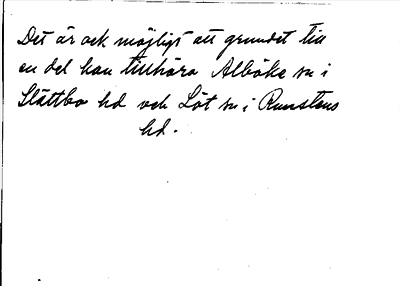 Det är ock möjligt att grundet till
en del kan tillhöra Alböke sn i
Slättbo hd och Löt sn i Runstens
hd.